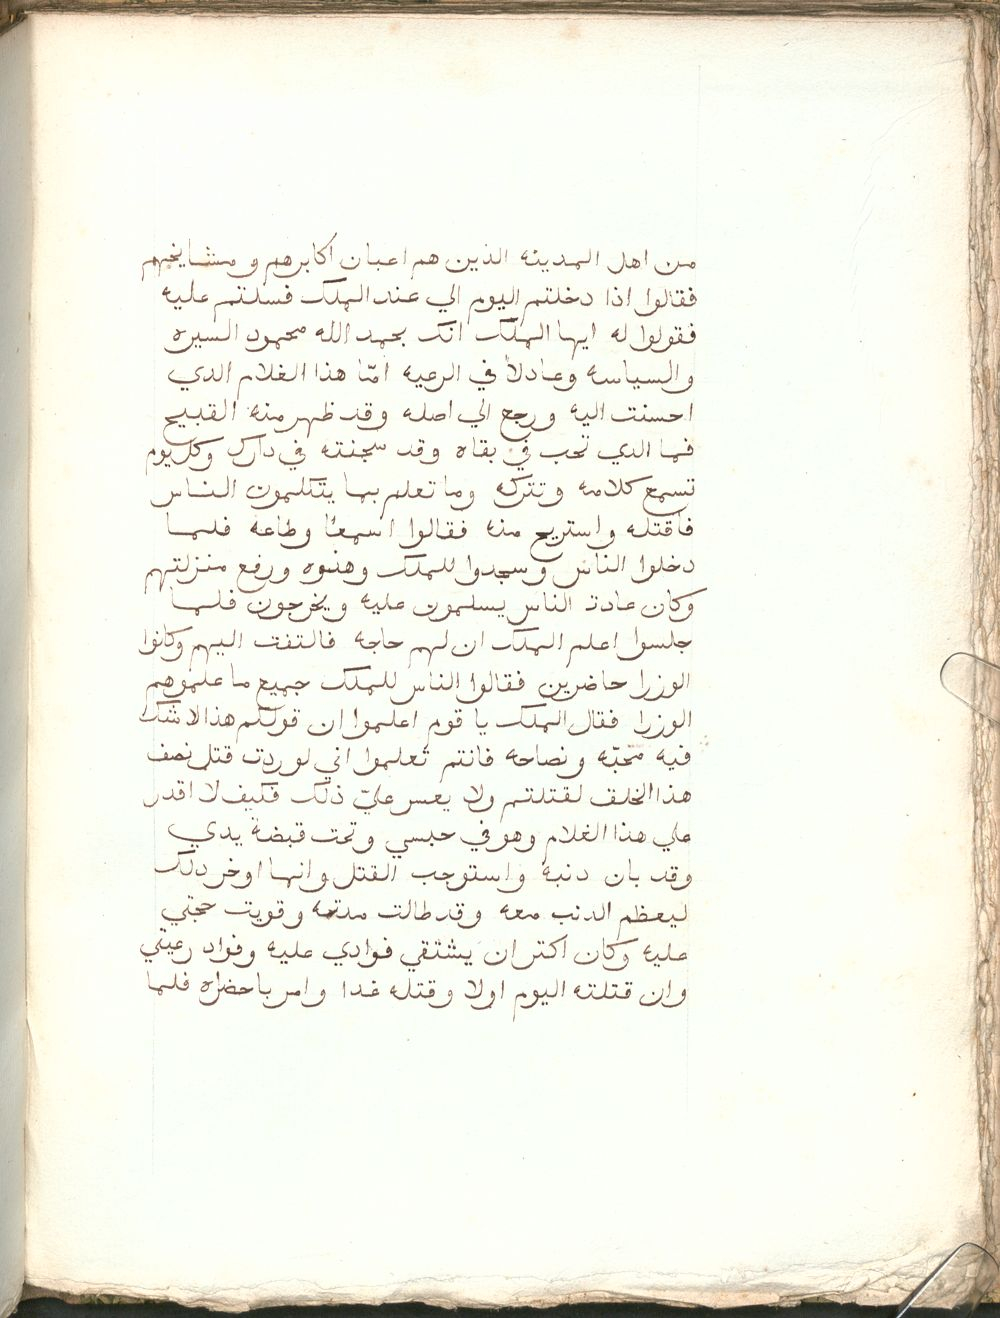 من اهل المدينه الذين هم اعيان اكابرهم و مشايخهم
فقالوا اذا دخلتم اليوم الي عند الملك فسلتم عليه
فقولوا له ايها الملك انك بحمد الله محمود السيره
والسياسه وعادلاً في الرعيه امّا هذا الغلام الدي
احسنت اليه ورجع الي اصله وقد ظهر منه القبيح
فما الدي تحب في بقاه وقد سجنته في دارك وكل يوم
تسمع كلامه وتتركه وما تعلم بما يتكلمون الناس
فاقتله واستريح منه فقالوا اسمعاً وطاعه فلما
دخلوا الناس وسجدوا للملك وهنوه ورفع منزلتهم
وكان عادت الناس يسلمون عليه ويخرجون فلما
جلسوا اعلم الملك ان لهم حاجه فالتفت اليهم وكانوا
الوزرا حاضرين فقالوا الناس للملك جميع ما علموهم
الوزرا فقال الملك يا قوم اعلموا ان قولكم هذا لا شك
فيه محبّه ونصاحه فانتم تعلموا اني لو ردت قتل نصف
هذا الخلق لقتلتم ولا يعسر عليّ ذلك فكيف لا اقدر
علي هذا الغلام وهو في حبسي وتحت قبضة يدي
وقد بان دنبه واستوجب القتل وانما اوخر دلك
ليعظم الدنب معه وقد طالت مدته وقويت حجتي
عليه وكان اكتر ان يشتقي فوادي عليه وفواد رعيتي
وان قتلته اليوم اولا وقتله غدا وامر باحضاره فلما